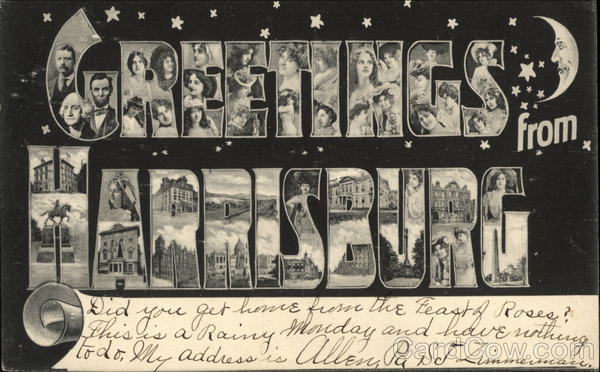 GREETINGS
from
HARRISBURG
Did you get home from the Feast of Roses?
This is a Rainy Monday and have nothing
to do. My address is Allen, Pa D J Zimmerman.
CardCow.com